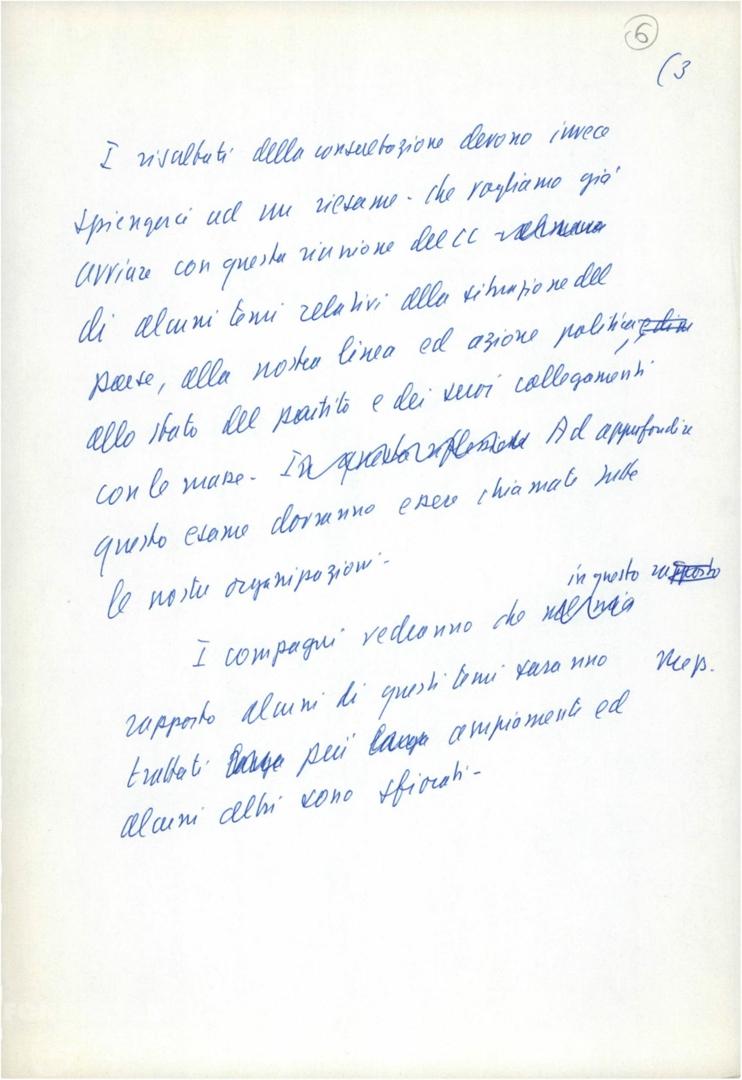 6
(3
I risultati della consultazione devono invece
spingerci ad un riesame - che vogliamo già
avviare con questa riunione del CC
di alcuni temi relativi alla situazione del
paese, alla nostra linea ed azione politica,
allo stato del partito e dei suoi collegamenti
con le masse. In questa riflessione Ad approfondire
questo esame dovranno essere chiamate tutte
le nostre organizzazioni.
in questo rapporto
I compagni vedranno che nel mio
rapporto alcuni di questi temi saranno
trattati più ampiamente ed
alcuni altri sono sfiorati -